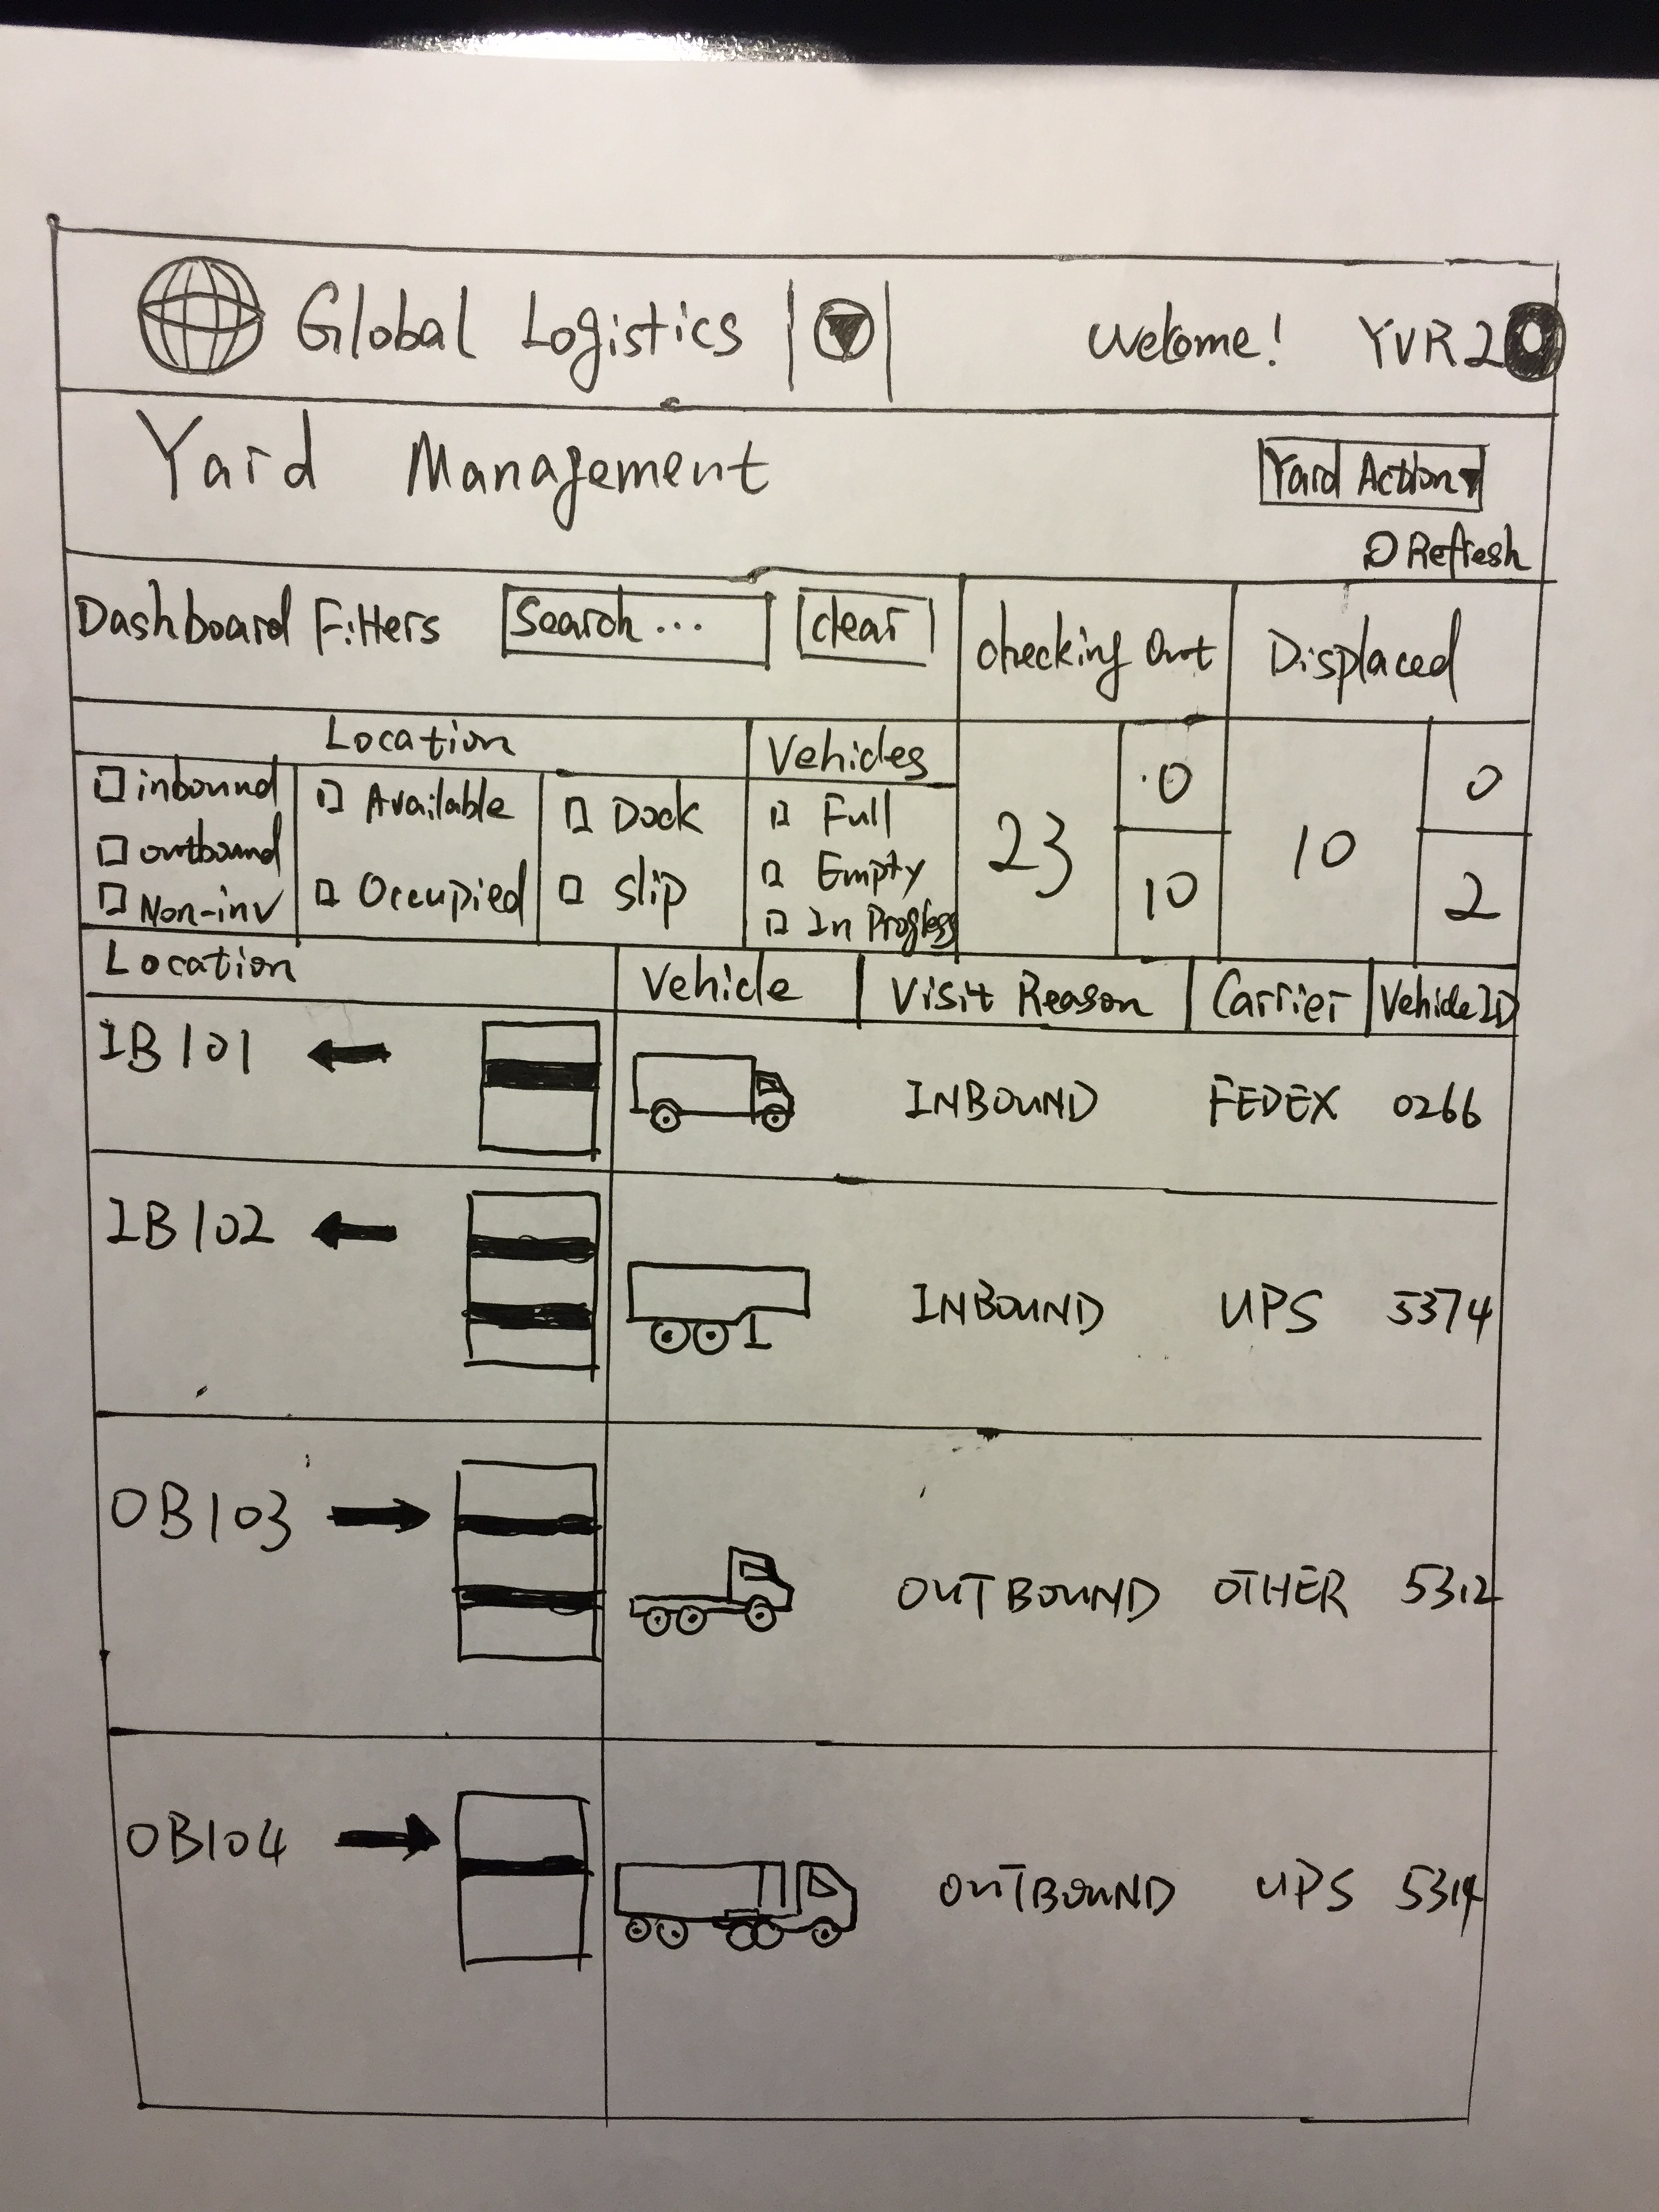 Global Logistics
Welcome! YVR2
Yard Management
Yard Action
Refresh
Dashboard Filters
Search...
clear
checking Out
Displaced
Location
Vehicles
inbound
outbound
Non-inv
Available
Occupied
Dock
slip
Full
Empty
In Progress
23
0
10
10
0
2
Location
Vehicle
Visit Reason
Carrier
Vehicle ID
IB101
INBOUND FEDEX 0266
IB102
INBOUND UPS 5374
OB103
OUTBOUND OTHER 5312
OB104
OUTBOUND UPS 5314